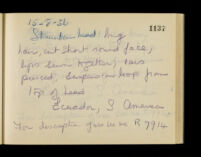 15-8-36
1137
Shrunken head, long
hair, cut short round face,
lips sewn together, ears
pierced, suspension loop from
top of head. S. America
Ecuador, S. America
For description of use see R 7914